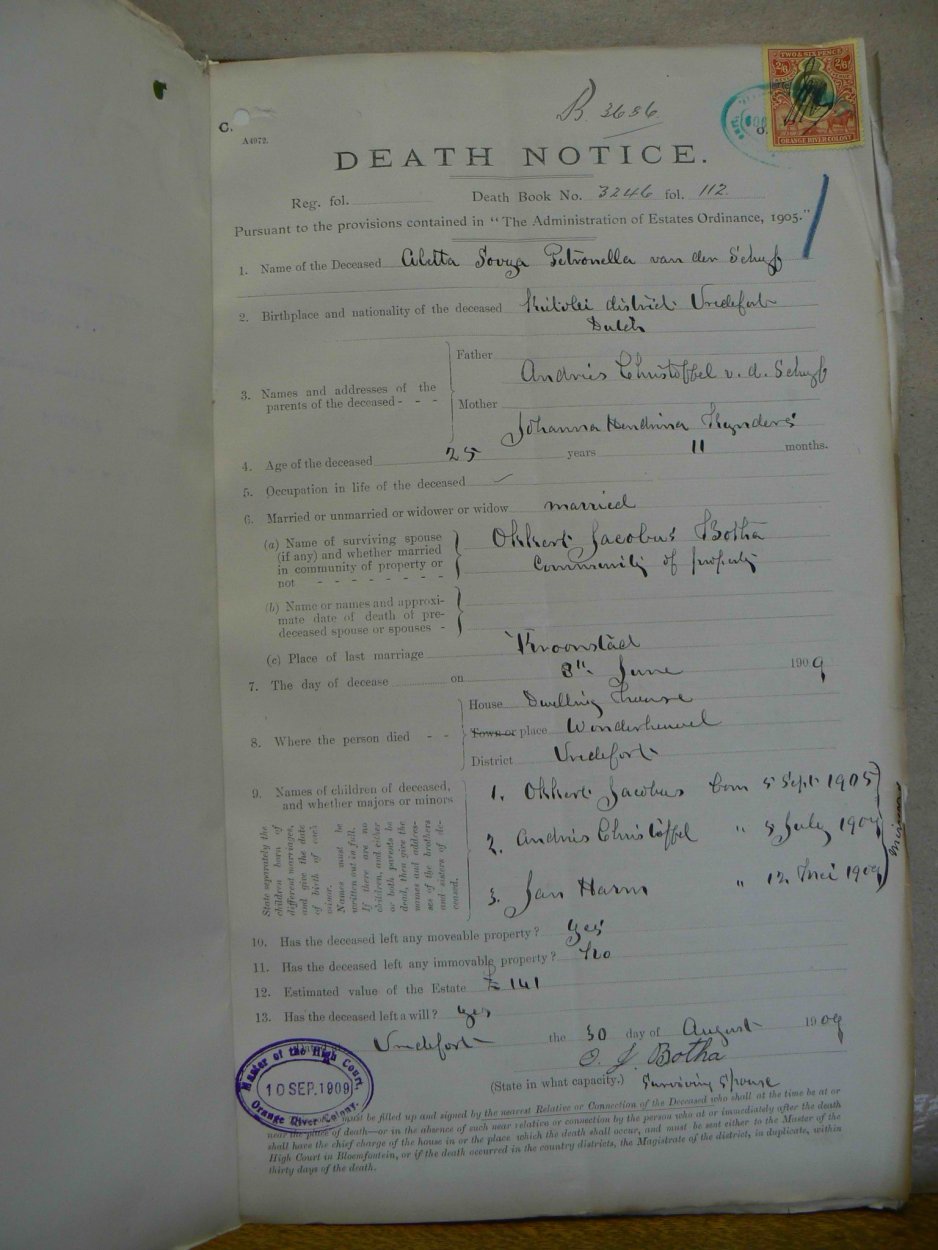 B. 3636
TWO & SIX PENCE
2/6 2/6
ORANGE RIVER COLONY
C.
A4972.
DEATH NOTICE.
Reg. fol. Death Book No. 3246 fol. 112
Pursuant to the provisions contained in "The Administration of Estates Ordinance, 1905."
1. Name of the Deceased Aletta Sovya Petronella van der Schyf
2. Birthplace and nationality of the deceased district Vredefort
Dutch
3. Names and addresses of the parents of the deceased - - -
Father
Andries Christoffel v. d. Schyf
Mother
Johanna Hendrina
4. Age of the deceased 25 years 11 months.
5. Occupation in life of the deceased
6. Married or unmarried or widower or widow married
(a) Name of surviving spouse
(if any) and whether married
in community of property or
not - - - - - - -
Okkert Jacobus Botha
Community of property
(b) Name or names and approxi-
mate date of death of pre-
deceased spouse or spouses -
(c) Place of last marriage Kroonstad
7. The day of decease on 8th June 1909
8. Where the person died - -
House Dwelling House
Town or place Wonderheuvel
District Vredefort
9. Names of children of deceased,
and whether majors or minors
State separately the
children born of
different marriages,
and give the date
of birth of each
minor.
Names must be
written out in full.
If there are no
children, and either
or both parents be
dead, then give the
names and address-
ses of the brothers
and sisters of de-
ceased.
1. Okkert Jacobus born 5 Sept 1905
2. Andries Christoffel " 5 July 1907
3. Jan Harm " 12 Mei 1909
minors
10. Has the deceased left any moveable property? Yes
11. Has the deceased left any immovable property? No
12. Estimated value of the Estate £ 141
13. Has the deceased left a will? Yes
Vredefort the 30 day of August 1909
O. J. Botha
(State in what capacity.) Surviving Spouse
Master of the High Court,
10 SEP. 1909
Orange River Colony.
must be filled up and signed by the nearest Relative or Connection of the Deceased who shall at the time be at or
near the place of death—or in the absence of such near relative or connection by the person who at or immediately after the death
shall have the chief charge of the house in or the place which the death shall occur, and must be sent either to the Master of the
High Court in Bloemfontein, or if the death occurred in the country districts, the Magistrate of the district, in duplicate, within
thirty days of the death.